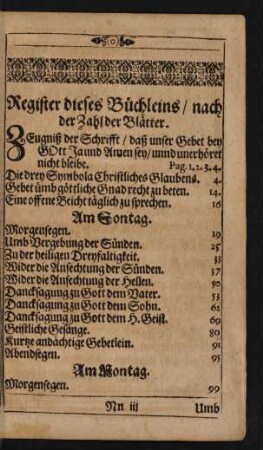 Register dieses Büchleins / nach
der Zahl der Blätter.
ZEugniß der Schrifft / daß unser Gebet bey
GOtt Ja und Amen sey / unnd unerhöret
nicht bleibe. Pag. 1. 2. 3. 4.
Die drey Symbola Christliches Glaubens. 4.
Gebet ümb göttliche Gnad recht zu beten. 14.
Eine offene Beicht täglich zu sprechen. 16
Am Sontag.
Morgensegen. 19
Umb Vergebung der Sünden. 25
Zu der heiligen Dreyfaltigkeit. 33
Wider die Anfechtung der Sünden. 37
Wider die Anfechtung der Hellen. 50
Dancksagung zu Gott dem Vater. 53
Dancksagung zu Gott dem Sohn. 61
Dancksagung zu Gott dem H. Geist. 69
Geistliche Gesänge. 80
Kurtze andächtige Gebetlein. 91
Abendsegen. 95
Am Montag.
Morgensegen. 99
Nn iij Umb